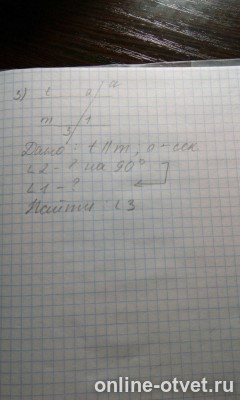 3) t 2 a
m 1
3
Дано: t ∥ m; a - сек
∠2 - ? на 90°
∠1 - ?
Найти: ∠3
online-otvet.ru